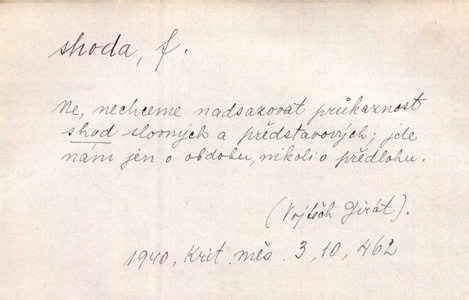 shoda, f.
Ne, nechceme nadsazovat průkaznost
shod slovných a představových; jde
nám jen o obdobu, nikoli o předlohu.
(Vojtěch Jirát).
1940, Krit. měs. 3, 10, 462